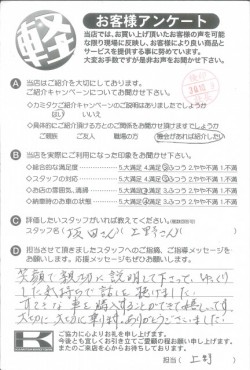 軽
お客様アンケート
当店では、お買い上げ頂いたお客様の声を可能な
限り現場に反映し、お客様により良い商品と
サービスを提供する事に努めています。
大変お手数ですが是非お声をお聞かせ下さい。
A 当店はご紹介を大切にしております。
ご紹介キャンペーンについてお聞かせ下さい。
◇カミタケご紹介キャンペーンのご説明はありましたでしょうか
はい いいえ
◇具体的にご紹介頂ける方とのご関係をお聞かせ頂けますでしょうか
ご親族 ご友人 職場の方 機会があれば紹介したい
B 当店を実際にご利用になった印象をお聞かせ下さい。
◇総合的な満足度 5.大満足 4.満足 3.ふつう 2.やや不満 1.不満
◇スタッフの対応 5.大満足 4.満足 3.ふつう 2.やや不満 1.不満
◇お店の雰囲気、清掃 5.大満足 4.満足 3.ふつう 2.やや不満 1.不満
◇納車時のお車の状態 5.大満足 4.満足 3.ふつう 2.やや不満 1.不満
C 評価したいスタッフがいれば教えてください。
スタッフ名( 坂田さん 上野さん )
D 担当させて頂きましたスタッフへのご指摘、ご応援メッセージを
お願いします。応援メッセージもぜひお願いします。
笑顔で親切に説明して下さって、ゆっくり
した気持ちで話を聴けました。
車を購入することができて嬉しいです。
大切に大切に乗ります。ありがとうございました。
K
ご協力に心よりお礼を申し上げます。
今後とも宜しくお引き立てご愛顧の程お願い申し上げます。
またのご来店を心からお待ちしております。
担当( 上野 )